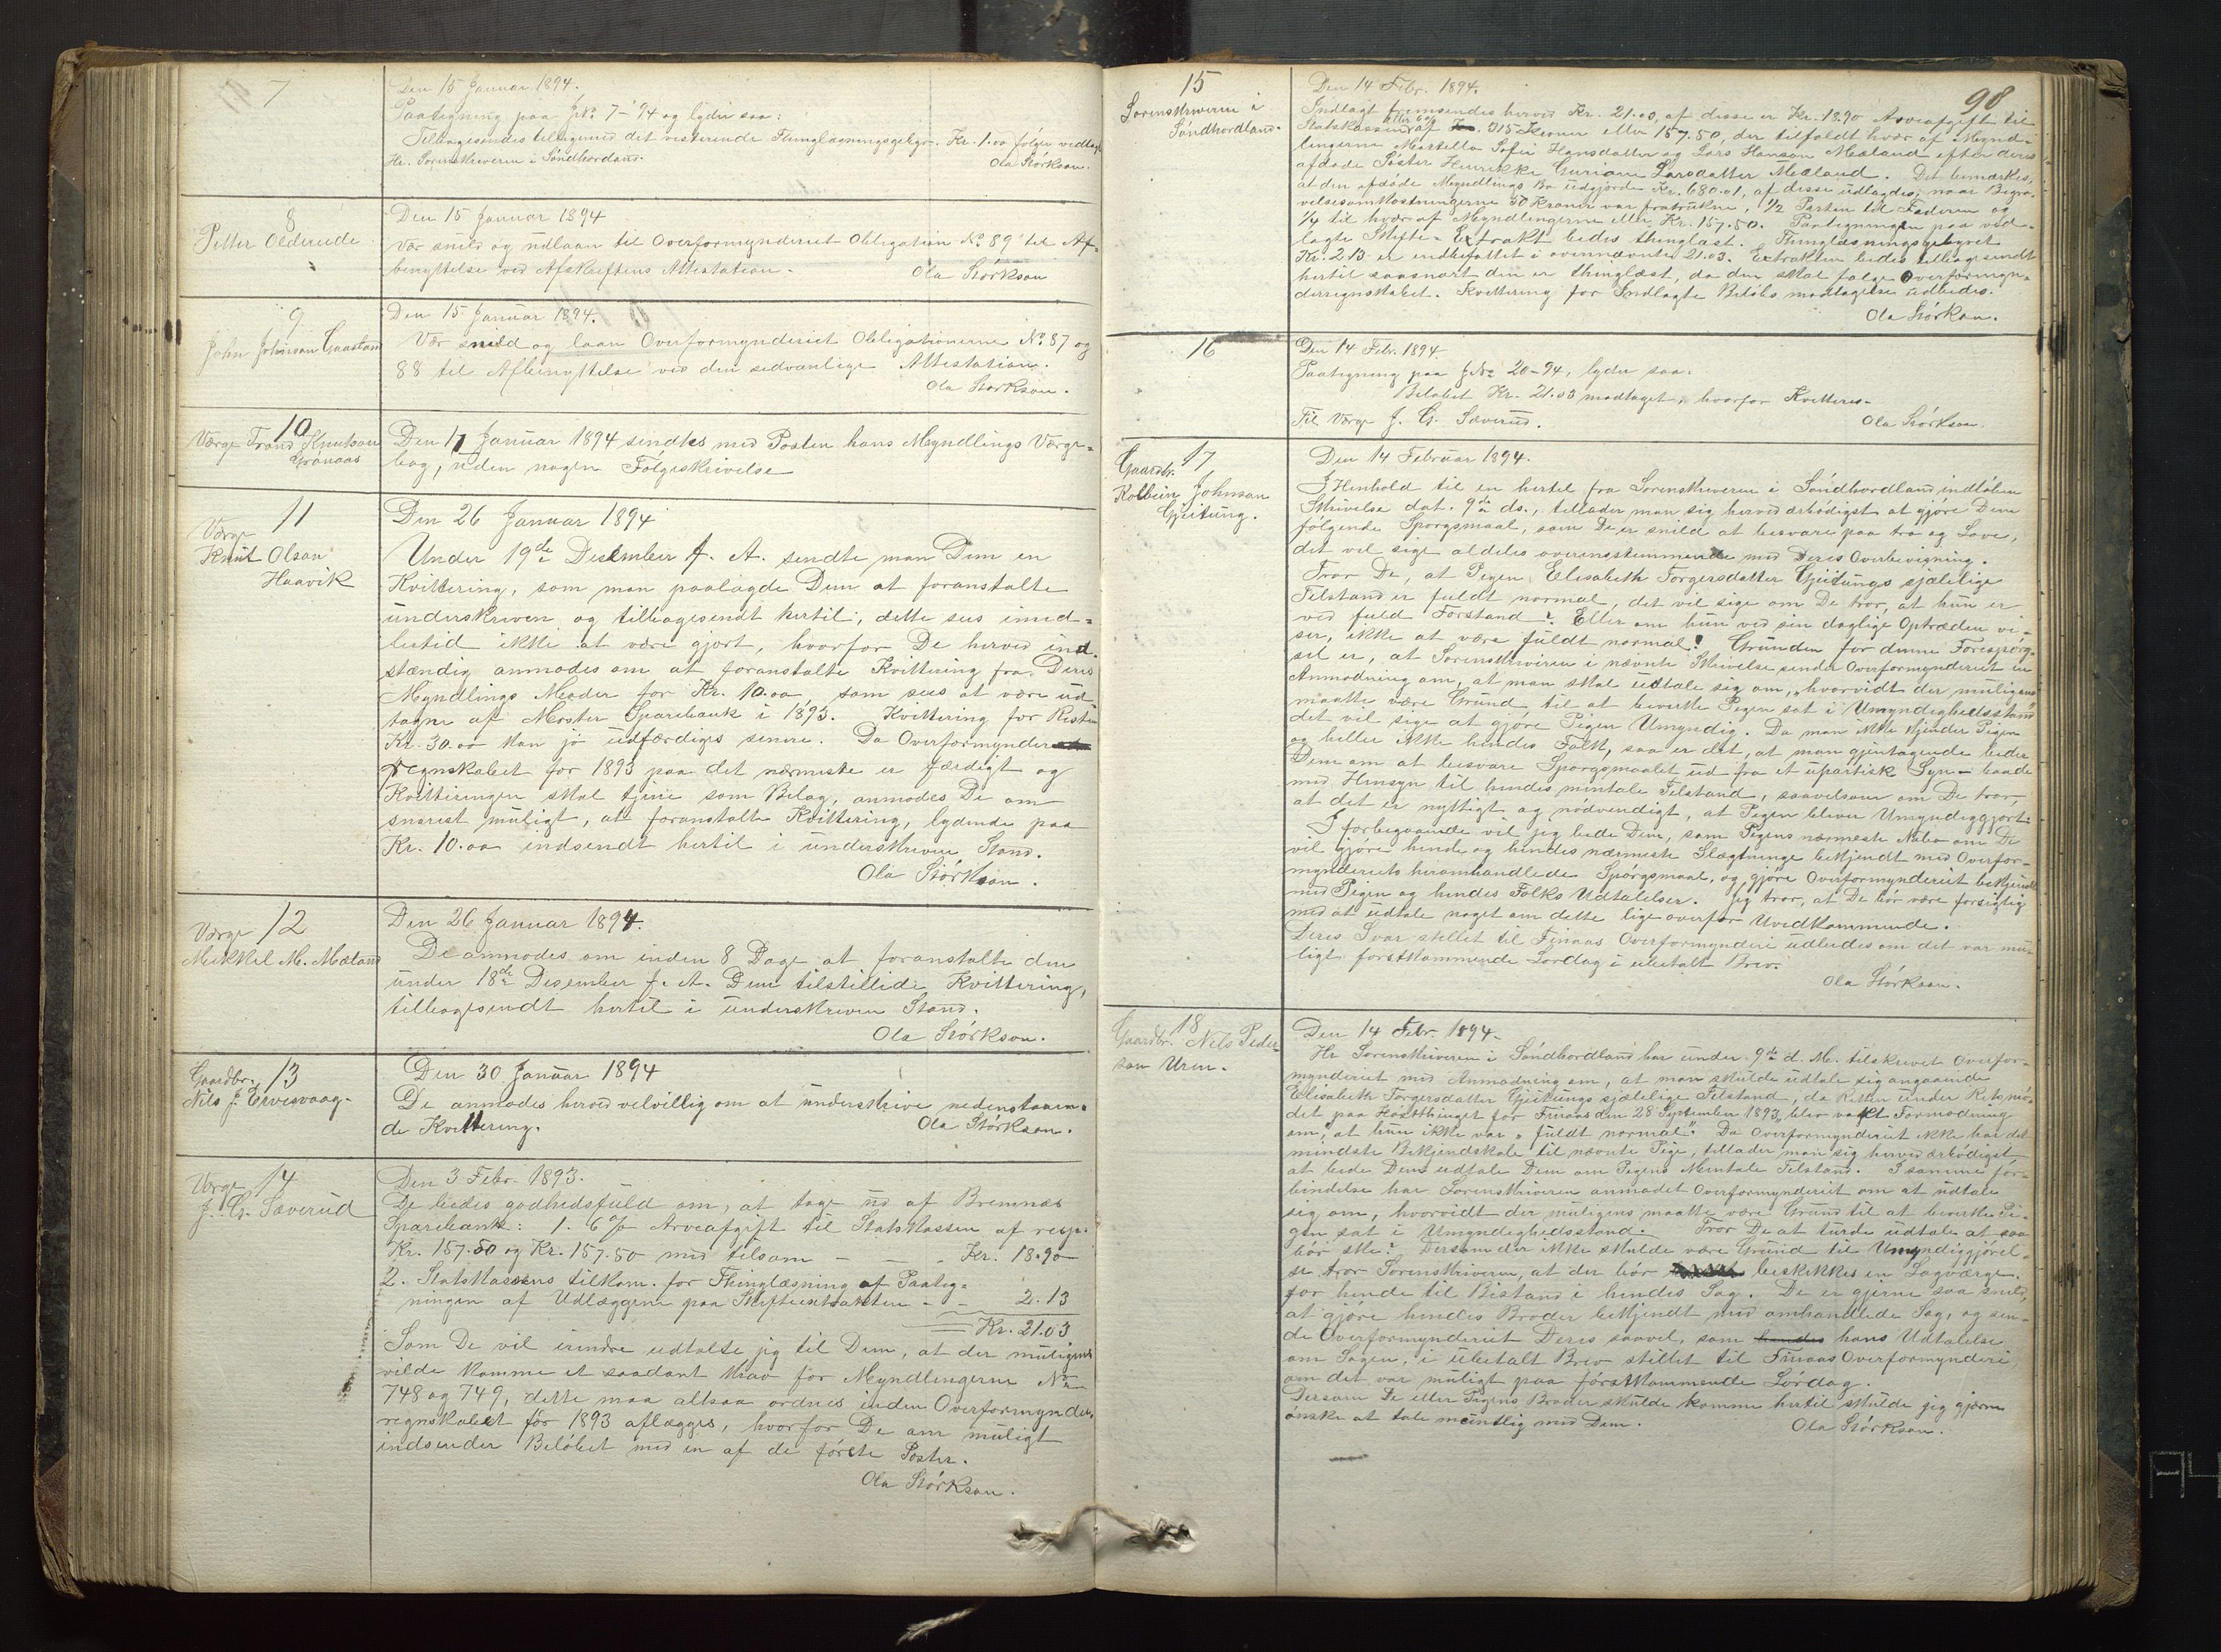 7
Den 15 Januar 1894.
Paategning paa J.No 7-'94 og lyder saa:
Tilbagesendes tilligemed det resterende Thinglæsningsgebyr. Kr. 1.00 følger vedlagt
Hr. Sorenskriveren i Søndhordland. Ola Størkson.
8
Petter Oldereide
Den 15 Januar 1894
Vær snild og udlaan til Overformynderiet Obligation No 89 til Af-
benyttelse ved Afskriftens Attestation. Ola Størkson
9
John Johnson Gaasland
Den 15 Januar 1894.
Vær snild og laan Overformynderiet Obligationerne No 87 og
88 til Afbenyttelse ved den sedvanlige Attestation.
Ola Størkson.
10
Værge Trond Knutson
Grønaas
Den 17 Januar 1894 sendtes med Posten hans Myndlings Værge-
bog, uden nogen Følgeskrivelse
11
Værge
Knut Olson
Haavik
Den 26 Januar 1894
Under 19de Desember f. A. sendte man Dem en
Kvittering, som man paalagde Dem at foranstalte
underskreven og tilbagesendt hertil; dette sees imid-
lertid ikke at være gjort, hvorfor De herved ind-
stændig anmodes om at foranstalte Kvittering fra Deres
Myndlings Moder for Kr. 10.00 som sees at være ud
tagne af Moster Sparebank i 1893. Kvittering for Resten
Kr. 30.00 kan jo udfærdiges senere. Da Overformynder
regnskabet for 1893 paa det nærmeste er færdigt og
Kvitteringen skal tjene som Bilag, anmodes De om
snarest muligt, at foranstalte Kvittering, lydende paa
Kr. 10.00 indsendt hertil i underskreven Stand.
Ola Størkson.
12
Værge
Mikkel M. Mæland
Den 26 Januar 1894.
De anmodes om inden 8 Dage at foranstalte den
under 18de Desember f. A. Dem tilstillede Kvittering,
tilbagesendt hertil i underskreven Stand.
Ola Størkson.
13
Gaardbr.
Nils J. Ervesvaag.
Den 30 Januar 1894
De anmodes herved velvillig om at underskrive nedenstaaen-
de Kvittering. Ola Størkson.
14
Værge
J. G. Sæverud
Den 3 Febr. 1893.
De bedes godhedsfuld om, at tage ud af Bremnæs
Sparebank: 1. 6 % Arveafgift til Statskassen af resp.
Kr. 157.50 og Kr. 157.50 med tilsam - - - Kr. 18.90
2. Statskassens tilkom. for Thinglæsning af Paateg-
ningen af Udlæggene paa Skifteextrakten - - 2.13
Kr. 21.03
Som De vil erindre udtalte jeg til Dem, at der muligens
vilde komme et saadant Krav for Myndlingerne No
748 og 749, dette maa altsaa ordnes inden Overformynder-
regnskabet for 1893 aflægges, hvorfor De om muligt
indsender Beløbet med en af de første Poster.
Ola Størkson.
98
15
Sorenskriveren i
Søndhordland.
Den 14 Febr. 1894.
Indlagt fremsendes herved Kr. 21.03, af disse er Kr. 18.90 Arveafgift til
Statskassen eller 6% af 315 Kroner eller 157.50, der tilfaldt hvær af Mynd-
lingerne Martella Sofie Hansdatter og Lars Hanson Mæland efter deres
afdøde Søster Henrikke Guriane Larsdatter Mæland. Det bemærkes,
at den afdøde Myndlings Bo udgjorde Kr. 680.01, af disse udlagdes, naar Begra-
velsesomkostningerne 50 Kroner var fratrukne, 1/2 Parten til Faderen og
1/4 til hvær af Myndlingerne eller Kr. 157.50. Paategningen paa ved-
lagte Skifte-Extrakt bedes thinglæst. Thinglæsningsgebyret
Kr. 2.13 er indbefattet i ovennævnte 21.03. Extrakten bedes tilbagesendt
hertil saasnart den er thinglæst, da den skal følge Overformyn-
derregnskabet. Kvittering for Indlagte Beløbs modtagelse udbedes.
Ola Størkson.
16
Den 14 Febr. 1894.
Paategning paa J.No 20-94, lyder saa.
Beløbet Kr. 21.03 modtaget, hvorfor Kvitteres.
Til Værge J. G. Sæverud. Ola Størkson
17
Gaardbr.
Kolbein Johnson
Gjeitung.
Den 14 Februar 1894.
I Henhold til en hertil fra Sorenskriveren i Søndhordland indløben
Skrivelse dat. 9de ds., tillader man sig herved ærbødigst at gjøre Dem
følgende Spørgsmaal, som De er snild at besvare paa tro og Love,
det vil sige aldeles overensstemmende med Deres Overbevisning.
Tror De, at Pigen Elisabeth Torgersdatter Gjeitungs sjælelige
Tilstand er fuldt normal, det vil sige om De tror, at hun er
ved fuld Forstand? Eller om hun ved sin daglige Optræden vi-
ser, ikke at være fuldt normal? Grunden for denne Forespørg-
sel er, at Sorenskriveren i nævnte Skrivelse sender Overformynderiet en
Anmodning om, at man skal udtale sig om, „hvorvidt der muligens
maatte være Grund til at bevirke Pigen sat i Umyndighedsstand"
det vil sige at gjøre Pigen Umyndig. Da man ikke kjender Pigen
og heller ikke hendes Folk, saa er det, at man gjentagende beder
Dem om at besvare Spørgsmaalet ud fra et upartisk Syn - baade
med Hensyn til hendes mentale Tilstand, saavelsom om De tror,
at det er nyttigt og nødvendigt, at Pigen bliver Umyndiggjort.
I forbegaaende vil jeg bede Dem, som Pigens nærmeste Nabo om De
vil gjøre hende og hendes nærmeste Slægtninge bekjendt med Overfor-
mynderiets heromhandlede Spørgsmaal, og gjøre Overformynderiet bekjendt
med Pigen og hendes Folks Udtalelser. Jeg tror, at De bør være forsigtig
med at udtale noget om dette lige overfor Uvedkommende.
Deres Svar stellet til Finaas Overformynderi udbedes om det var mu-
ligt førstkommende Lørdag i ubetalt Brev.
Ola Størkson.
18
Gaardbr. Nils Peder-
son Uren.
Den 14 Febr. 1894.
Hr Sorenskriveren i Søndhordland har under 9de d. M. tilskrevet Overfor-
mynderiet med Anmodning om, at man skulde udtale sig angaaende
Elisabeth Torgersdatter Gjeitungs sjælelige Tilstand, da Retten under Retsmø-
det paa Høstthinget for Finaas den 28 September 1893, blev vakt Formodning
om, at hun ikke var „fuldt normal". Da Overformynderiet ikke har det
mindste Bekjendskab til nævnte Pige, tillader man sig herved ærbødigst
at bede Dem udtale Dem om Pigens Mentale Tilstand. I samme for-
bindelse har Sorenskriveren anmodet Overformynderiet om at udtale
sig om, hvorvidt der muligens maatte være Grund til at bevirke Pi-
gen sat i Umyndighedsstand. Tror De at turde udtale at saa
bør ske? Dersom der ikke skulde være Grund til Umyndiggjørel-
se tror Sorenskriveren, at der bør beskikkes en Lagværge
for hende til Bistand i hendes Sag. De er gjerne saa snild,
at gjøre hendes Broder bekjendt med omhandlede Sag, og sen-
de Overformynderiet Deres saavel, som hendes hans Udtalelse
om Sagen, i ubetalt Brev stillet til Finaas Overformynderi,
om det var muligt paa førstkommende Lørdag.
Dersom De eller Pigens Broder skulde komme hertil skulde jeg gjerne
ønske at tale mundtlig med Dem. Ola Størkson.